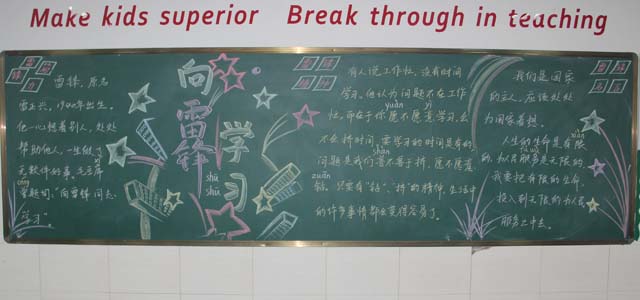 Make kids superior Break through in teaching
向雷锋学习
shū
shū
雷锋，原名
雷正兴，1940年出生。
他一心想着别人，处处
帮助他人，一生做了
无数件好事。毛主席
曾题词："向雷锋同志
学习"。
有人说工作忙，没有时间
学习。他认为问题不在工作
yuàn yì
忙，而在于你愿不愿意学习，会
不会挤时间。要学习的时间是有的，
问题是我们善不善于挤，愿不愿意
zuān
钻。只要有"钻"、"挤"的精神，生活中
的许多事情都会变得容易了。
我们是国家
的主人，应该处处
为国家着想。
xiàn
人生的生命是有限
的，为人民服务是无限的，
我要把有限的生命，
投入到无限的为人民
服务之中去。